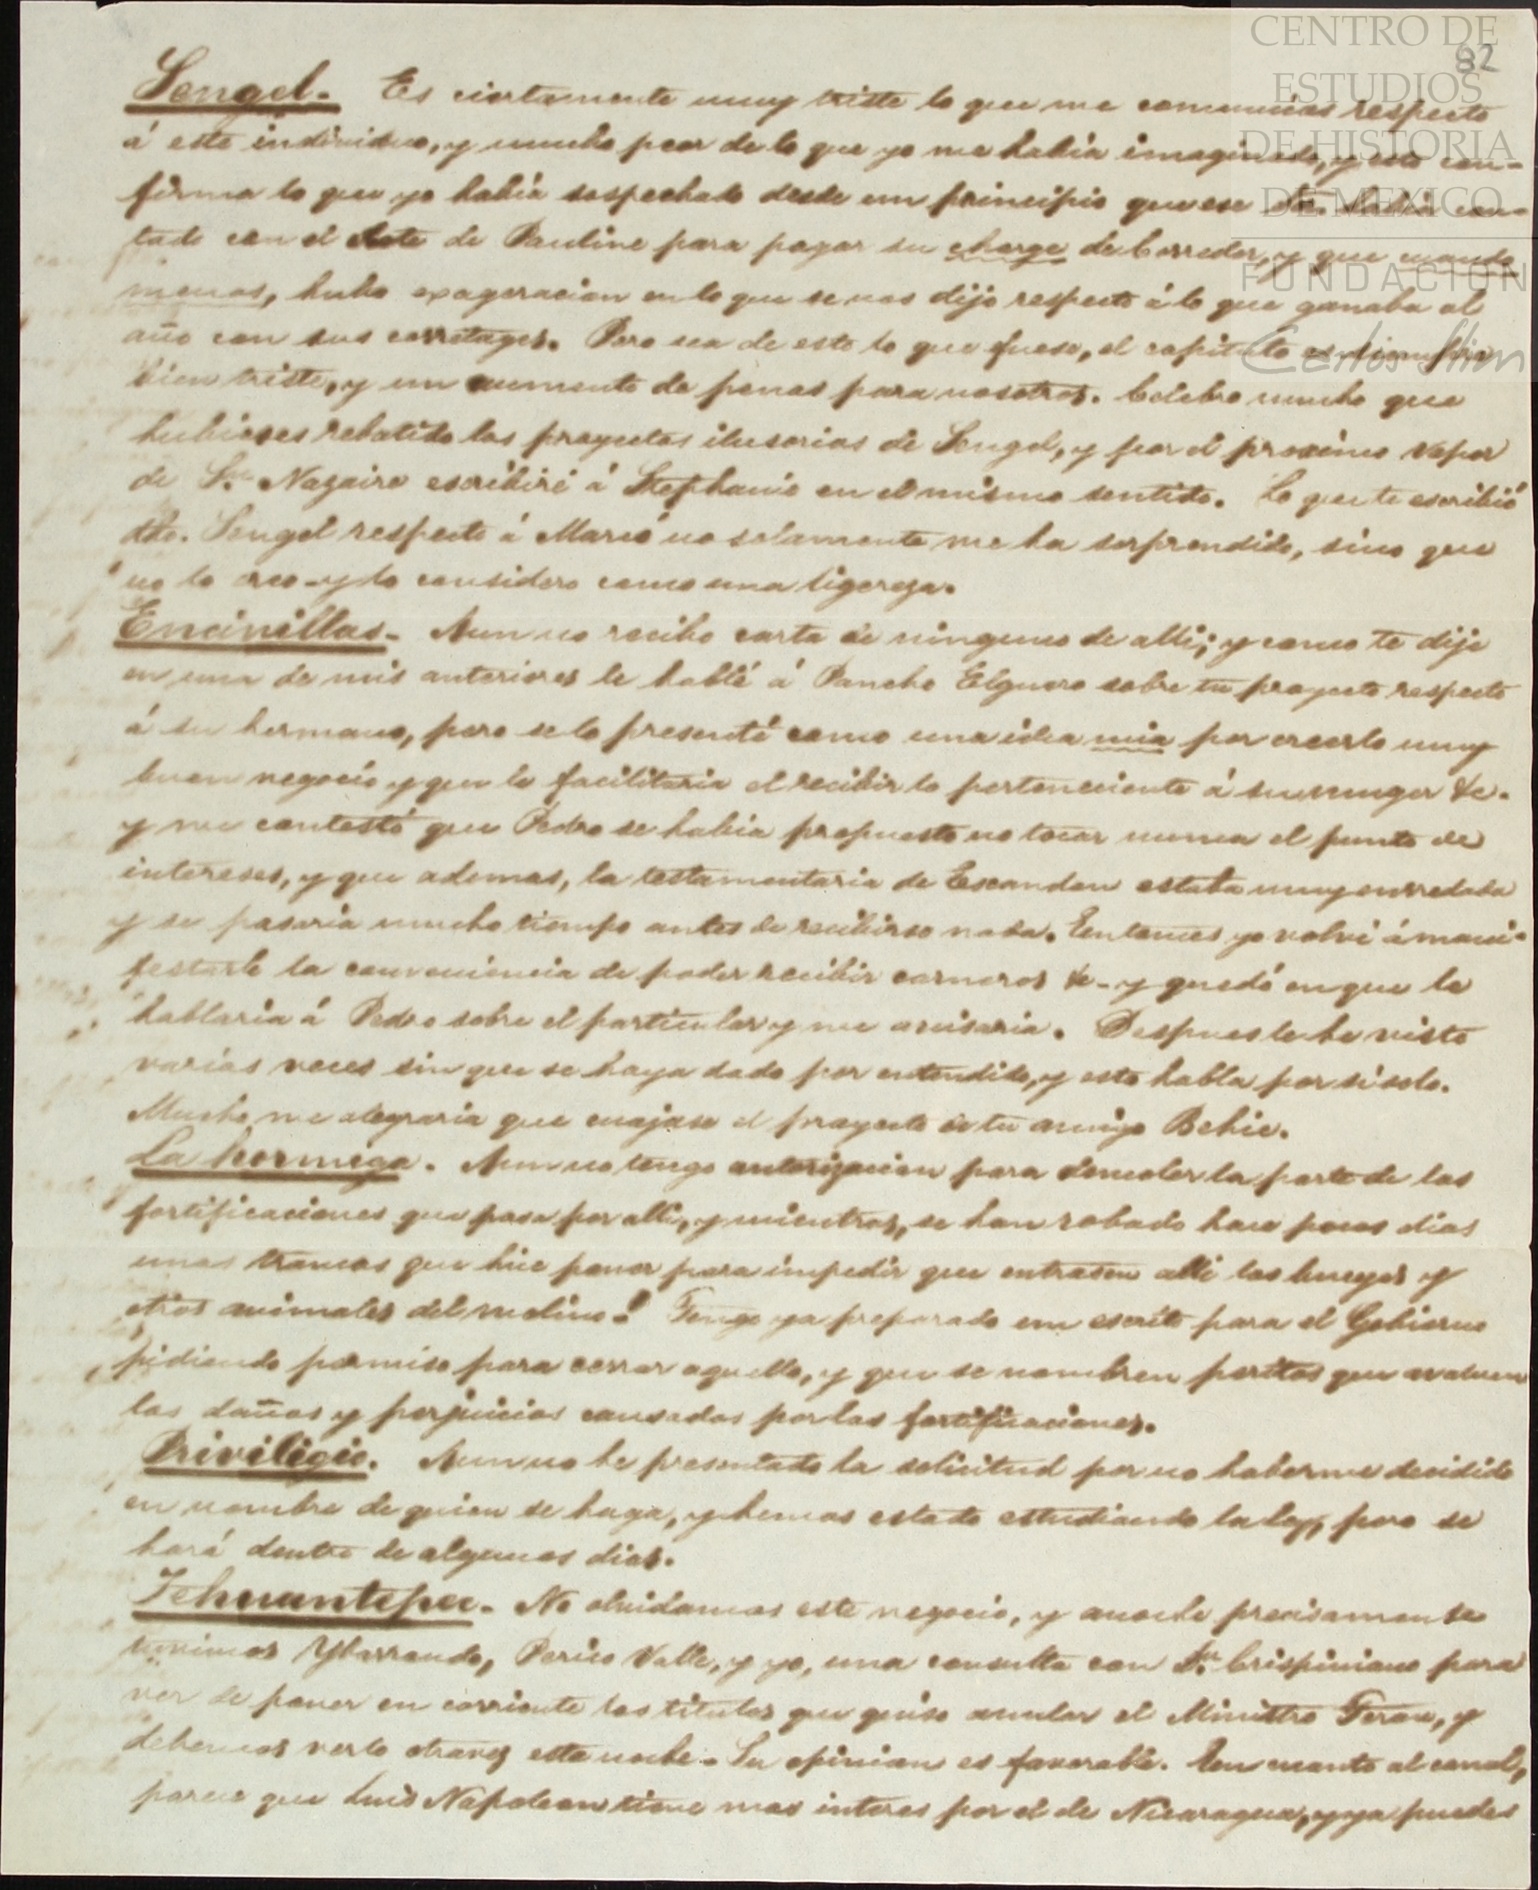 CENTRO DE
ESTUDIOS
DE HISTORIA
DE MEXICO
FUNDACION
Carlos Slim
82
Sengel. Es ciertamente muy triste lo que me comunicas respecto
á este individuo, y mucho peor de lo que yo me habia imaginado, y esto con-
firma lo que yo habia sospechado desde un principio que ese habia con-
tado con el dote de Pauline para pagar su charge de Corredor, y que cuando
menos, hubo exageracion en lo que se nos dijo respecto á lo que ganaba al
año con sus corretages. Pero sea de esto lo que fuese, el capitulo es siempre
bien triste, y un aumento de penas para nosotros. Celebro mucho que
hubieses rebatido los proyectos ilusorios de Sengel, y por el proximo vapor
de St. Nazaire escribiré á Stephanie en el mismo sentido. Lo que te escribió
dho. Sengel respecto á Mario no solamente me ha sorprendido, sino que
no lo creo y lo considero como una ligereza.
Encinillas. Aun no recibo carta de ninguno de alli; y como te dije
en una de mis anteriores le hablé á Pancho Elguero sobre tu proyecto respecto
á su hermano, pero se lo presenté como una idea mia por creerlo muy
buen negocio y que le facilitaria el recibir lo perteneciente á su muger &c.
y me contestó que Pedro se habia propuesto no tocar nunca el punto de
intereses, y que ademas, la testamentaria de Escandon estaba muy enredada
y se pasaria mucho tiempo antes de recibirse nada. Entonces yo volvi á mani-
festarle la conveniencia de poder recibir carneros &c. y quedó en que le
hablaria á Pedro sobre el particular y me avisaria. Despues le he visto
varias veces sin que se haya dado por entendido, y esto habla por si solo.
Mucho me alegraria que cuajase el proyecto de tu amigo Behic.
La hormiga. Aun no tengo autorizacion para demoler la parte de las
fortificaciones que pasa por alli, y mientras, se han robado hace pocos dias
unas trancas que hice poner para impedir que entrasen alli los bueyes y
otros animales del molino! Tengo ya preparado un escrito para el Gobierno
pidiendo permiso para cerrar aquello, y que se nombren peritos que avaluen
los daños y perjuicios causados por las fortificaciones.
Priviligio. Aun no he presentado la solicitud por no haberme decidido
en nombre de quien se haga, y hemos estado estudiando la ley, pero se
hará dentro de algunos dias.
Tehuantepec. No olvidamos este negocio, y anoche precisamente
tuvimos Ybarrondo, Perico Valle, y yo, una consulta con Dn. Crispiniano para
ver de poner en corriente los titulos que quiso anular el Ministro Teran, y
debemos verlo otra vez esta noche. Su opinion es favorable. En cuanto al canal,
parece que Luis Napoleon tiene mas interes por el de Nicaragua, y ya puedes